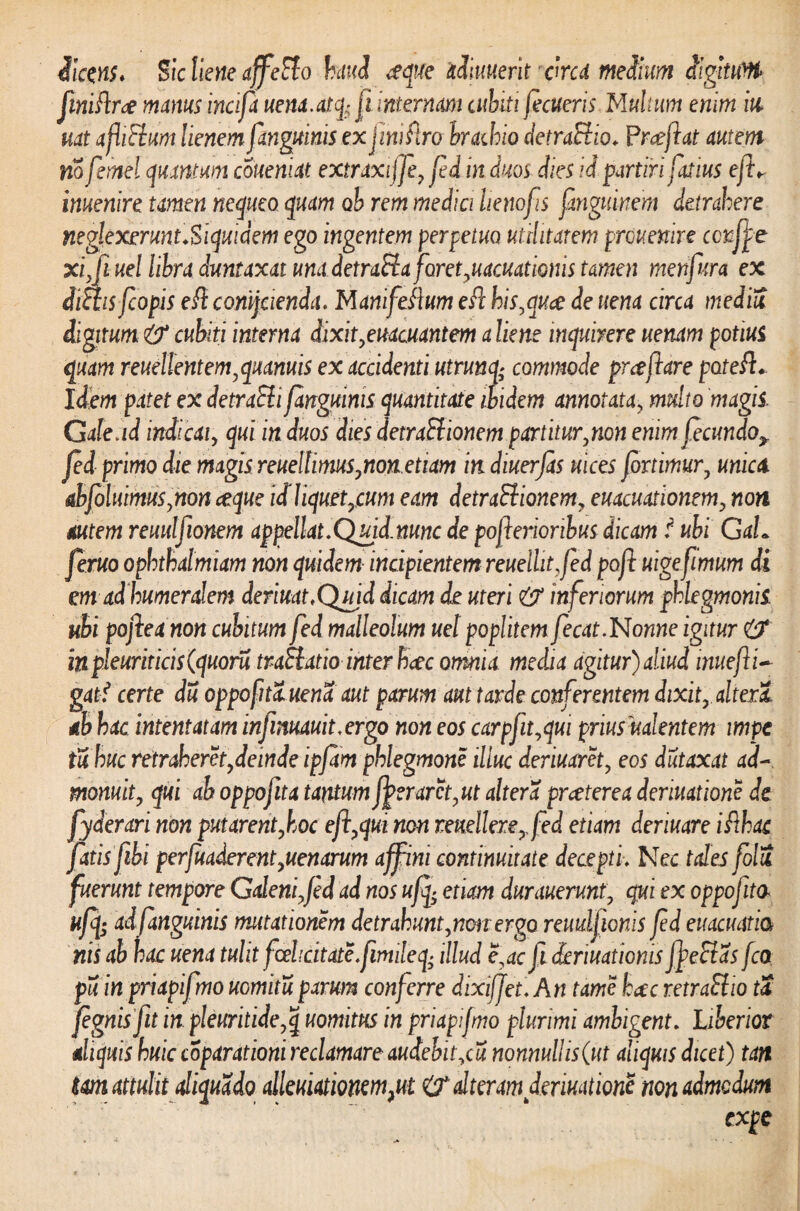 dicens. Sic liene affecto haud æque adiuuerit circa medium digitum
sinistræ manus incisa uena. atq; si internam cubiti secueris. Multum enim iu
uat aflictum lienem sanguinis ex sinistro brachio detractio. Præstat autem
nō semel quantum cōueniat extraxisse, sed in duos dies id partiri satius est.
inuenire tamen nequeo quam ob rem medici lienosis sanguinem detrahere
neglexerunt. Siquidem ego ingentem perpetuo utilitatem prouenire conspe
xi, si uel libra duntaxat una detracta foret, uacuationis tamen mensura ex
dictis scopis est conijcienda. Manifestum est his, quæ de uena circa mediū
digitum & cubiti interna dixit, euacuantem a liene inquirere uenam potius
quam reuellentem, quanuis ex accidenti utrunq; commode præstare potest.
Idem patet ex detracti sanguinis quantitate ibidem annotata, multo magis
Gale. id indicat, qui in duos dies detractionem partitur, non enim secundo,
sed primo die magis reuellimus, non etiam in diuersas uices sortimur, unica
absoluimus, non æque id liquet, cum eam detractionem, euacuationem, non
autem reuulsionem appellat. Quid nunc de posterioribus dicam? ubi Gal.
seruo ophthalmiam non quidem incipientem reuellit, sed post uigesimum di
em ad humeralem deriuat. Quid dicam de uteri & inferiorum phlegmonis
ubi postea non cubitum sed malleolum uel poplitem secat. Nonne igitur &
in pleuriticis (quorū tractatio inter hæc omnia media agitur) aliud inuesti-
gat? certe dū oppositā uenā aut parum aut tarde conferentem dixit, alterā
ab hac intentatam insinuauit. ergo non eos carpsit, qui prius ualentem impe
tū huc retraherēt, deinde ipsam phlegmonē illuc deriuarēt, eos dūtaxat ad-
monuit, qui ab opposita tantum sperarēt, ut alterā præterea deriuationē de
syderari non putarent, hoc est, qui non reuellere, sed etiam deriuare isthac
satis sibi persuaderent, uenarum affini continuitate decepti. Nec tales solū
fuerunt tempore Galeni, sed ad nos usq; etiam durauerunt, qui ex opposito
usq; ad sanguinis mutationēm detrahunt, non ergo reuulsionis sed euacuatio
nis ab hac uena tulit fœlicitatē. simileq; illud ē, ac si deriuationis spectās sco
pū in priapismo uomitū parum conferre dixisset. An tamē hæc retractio tā
segnis sit in pleuritide, q̄ uomitus in priapismo plurimi ambigent. Liberior
aliquis huic cōparationi reclamare audebit, cū nonnullis (ut aliquis dicet) tan
tam attulit aliquādo alleuiationem, ut & alteram deriuationē non admodum
expe